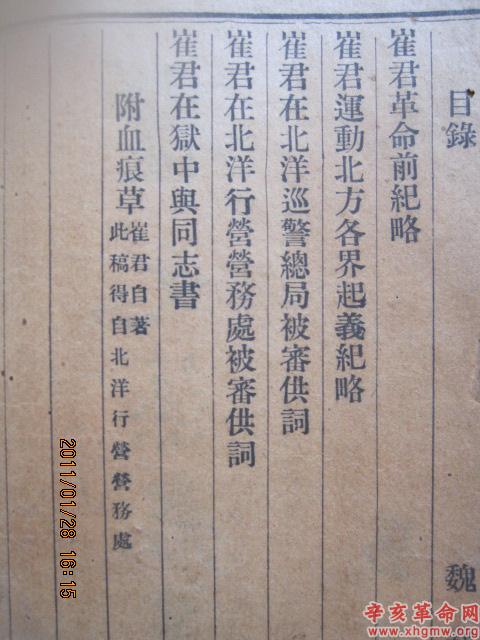 目錄
魏
崔君革命前紀略
崔君運動北方各界起義紀略
崔君在北洋巡警總局被審供詞
崔君在北洋行營營務處被審供詞
崔君在獄中與同志書
附血痕草 崔君自著
此稿得自北洋行營營務處
2011/01/28 16:15
辛亥革命网
www.xhgmw.org